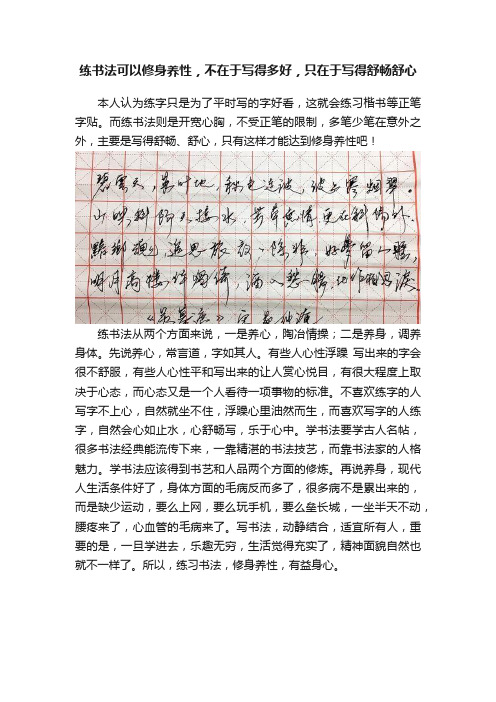 练书法可以修身养性，不在于写得多好，只在于写得舒畅舒心
本人认为练字只是为了平时写的字好看，这就会练习楷书等正笔
字贴。而练书法则是开宽心胸，不受正笔的限制，多笔少笔在意外之
外，主要是写得舒畅、舒心，只有这样才能达到修身养性吧！
碧雲天，黄叶地，秋色连波，波上寒烟翠。
山映斜阳天接水，芳草無情，更在斜陽外，
黯鄉魂，追思旅夜夜，除非，好夢留人睡，
明月高楼休獨倚，酒入愁腸，化作相思淚，
《苏幕遮》宋 范仲淹
练书法从两个方面来说，一是养心，陶冶情操；二是养身，调养
身体。先说养心，常言道，字如其人。有些人心性浮躁 写出来的字会
很不舒服，有些人心性平和写出来的让人赏心悦目，有很大程度上取
决于心态，而心态又是一个人看待一项事物的标准。不喜欢练字的人
写字不上心，自然就坐不住，浮躁心里油然而生，而喜欢写字的人练
字，自然会心如止水，心舒畅写，乐于心中。学书法要学古人名帖，
很多书法经典能流传下来，一靠精湛的书法技艺，而靠书法家的人格
魅力。学书法应该得到书艺和人品两个方面的修炼。再说养身，现代
人生活条件好了，身体方面的毛病反而多了，很多病不是累出来的，
而是缺少运动，要么上网，要么玩手机，要么垒长城，一坐半天不动，
腰疼来了，心血管的毛病来了。写书法，动静结合，适宜所有人，重
要的是，一旦学进去，乐趣无穷，生活觉得充实了，精神面貌自然也
就不一样了。所以，练习书法，修身养性，有益身心。